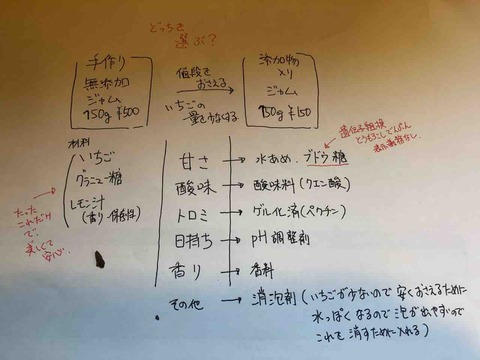 どっちを
選ぶ?
手作り
無添加
ジャム
150g ¥500
値段を
おさえる
いちごの
量を少なくする
添加物
入り
ジャム
150g ¥150
材料
いちご
グラニュー糖
レモン汁
(香り・保存性)
たった
これだけ
で、
美しくて
安心。
遺伝子組換
とうもろこしでんぷん
表示義務なし
甘さ → 水あめ、ブドウ糖
酸味 → 酸味料(クエン酸)
トロミ → ゲル化済(ペクチン)
日持ち → pH調整剤
香り → 香料
その他 → 消泡剤(いちごが少ないので安くおさえるために
水っぽくなるので泡が出やすいので
これを消すために入れる)